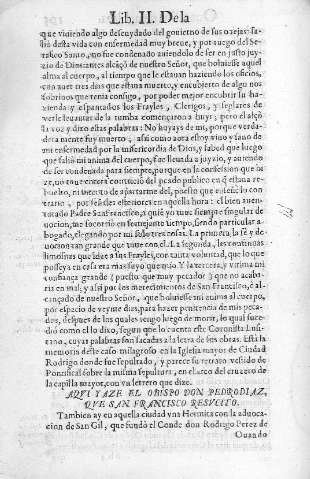 Lib. II. De la
que viuiendo algo descuydado del gouierno de sus ouejas: fa-
lio desta vida con enfermedad muy breue, y por ruego del Se-
rafico Santo, no fue condenado auiendolo de ser en justo juy-
zio de Dios: antes alcançó de nuestro Señor, que boluiesse aquel
alma al cuerpo, al tiempo que le estauan haziendo los oficios,
con auer tres dias que estaua muerto, y encubierto de algunos
sobrinos que tenia consigo, por poder mejor encubrir su ha-
zienda y espantados los Frayles, Clerigos, y seglares de
verle leuantar de la tumba començaron a huyr, pero el alçò
la voz y dixo estas palabras: No huyays de mi, porque verda-
dera mente fuy muerto, assi como aora estoy viuo y sano de
mi enfermedad por la misericordia de Dios, y sabed que luego
que salio mi anima del cuerpo, fue lleuada a juyzio, y auiendo
de ser condenada para siempre, porque en la confession que hi-
ze, no tuue entera contricion del pecado publico en que estaua re-
buelto, ni intento de apartarme del, puesto que enseñè lo con-
trario, por señales esteriores en aquella hora: el bien auen-
turado Padre San Francisco, a quiẽ yo tuue siempre singular de
uocion, me socorrio en semejante tiempo, siendo particular a-
bogado, alegando por mi solo tres cosas. La primera, la fè y de-
uocion tan grande que tuue con el. La segunda, las continuas
limosnas que hize a sus Frayles, con tanta voluntad, que lo que
posseya en casa era mas suyo que mio. Y la tercera, y vltima mi
confiança grande (puesto que muy pecador) que no acaba-
ria en mal, y assi por los merecimientos de San Francisco, è al-
cançado de nuestro Señor, que boluiesse mi anima al cuerpo,
por espacio de veynte dias, para hazer penitencia de mis peca-
dos, despues de los quales tengo luego de morir, lo qual suce-
dió como el lo dixo, segun que lo cuenta este Coronista Lusi-
tano, cuyas palabras son sacadas a la letra de sus obras. Està la
memoria deste caso milagroso en la Iglesia mayor de Ciudad
Rodrigo donde fue sepultado, y parece su retrato vestido de
Pontifical sobre la misma sepultura, en el arco del cruzero de
la capilla mayor, con vn letrero que dize.
AQVI YAZE EL OBISPO DON PEDRO DIAZ,
QVE SAN FRANCISCO RESVCITO.
Tambien ay en aquella ciudad vna Hermita con la aduoca-
cion de San Gil, que fundó el Conde don Rodrigo Perez de
Ouando